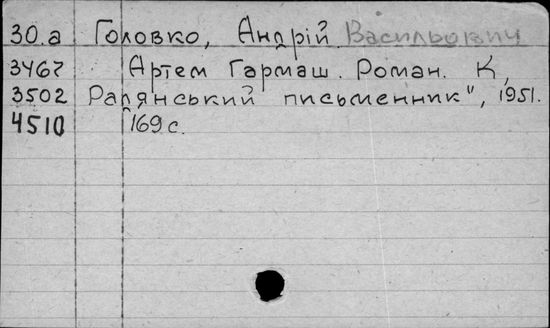 30.а Головко, Андрій Васильович
3467 Артем Гармаш. Роман. К,
3502 Радянський письменник", 1951.
4510 169 с.